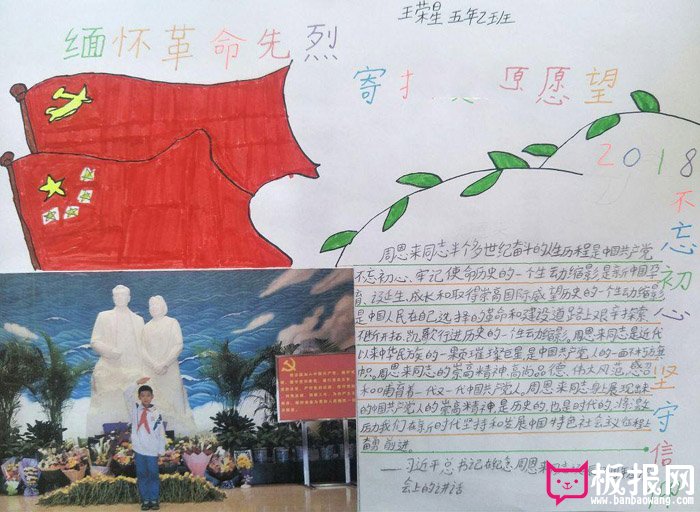 王荣星 五年乙班
缅怀革命先烈
寄托 愿望
2018
不忘初心
坚守信
周恩来同志半个多世纪奋斗的人生历程是中国共产党
不忘初心、牢记使命历史的一个生动缩影是新中国孕
育、诞生、成长和取得崇高国际威望历史的一个生动缩影
是中国人民在自己选择的革命和建设道路上艰辛探索
不断开拓、凯歌行进历史的一个生动缩影。周恩来同志是近代
以来中华民族的一颗璀璨巨星是中国共产党人的一面不朽
帜。周恩来同志的崇高精神、高尚品德、伟大风范、感召
和哺育着一代又一代中国共产党人。周恩来同志身上展现出来
的中国共产党人的崇高精神是历史的,也是时代的,将激
励我们在新时代坚持和发展中国特色社会主义征程上
奋勇前进。
——习近平总书记在纪念周恩来
会上的讲话
板报网
www.banbaowang.com